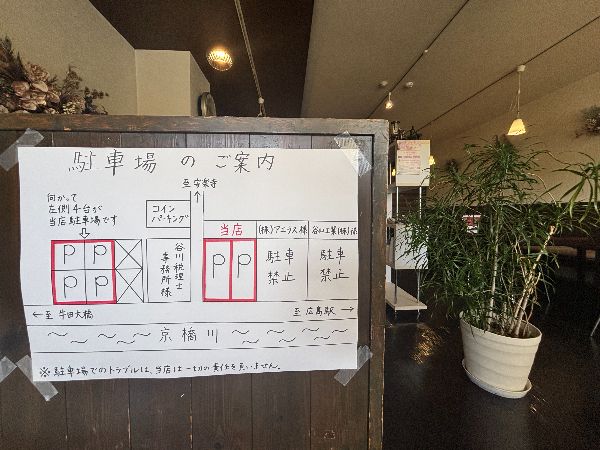 駐車場のご案内
至安楽寺
向かって
左側4台が
当店駐車場です
コイン
パーキング
当店
(株)アニラス様
谷山工業(株)様
P P
P P
谷川税理士
事務所様
P P
駐車
禁止
駐車
禁止
←至牛田大橋
至広島駅→
京橋川
※駐車場でのトラブルは、当店は一切の責任を負いません。